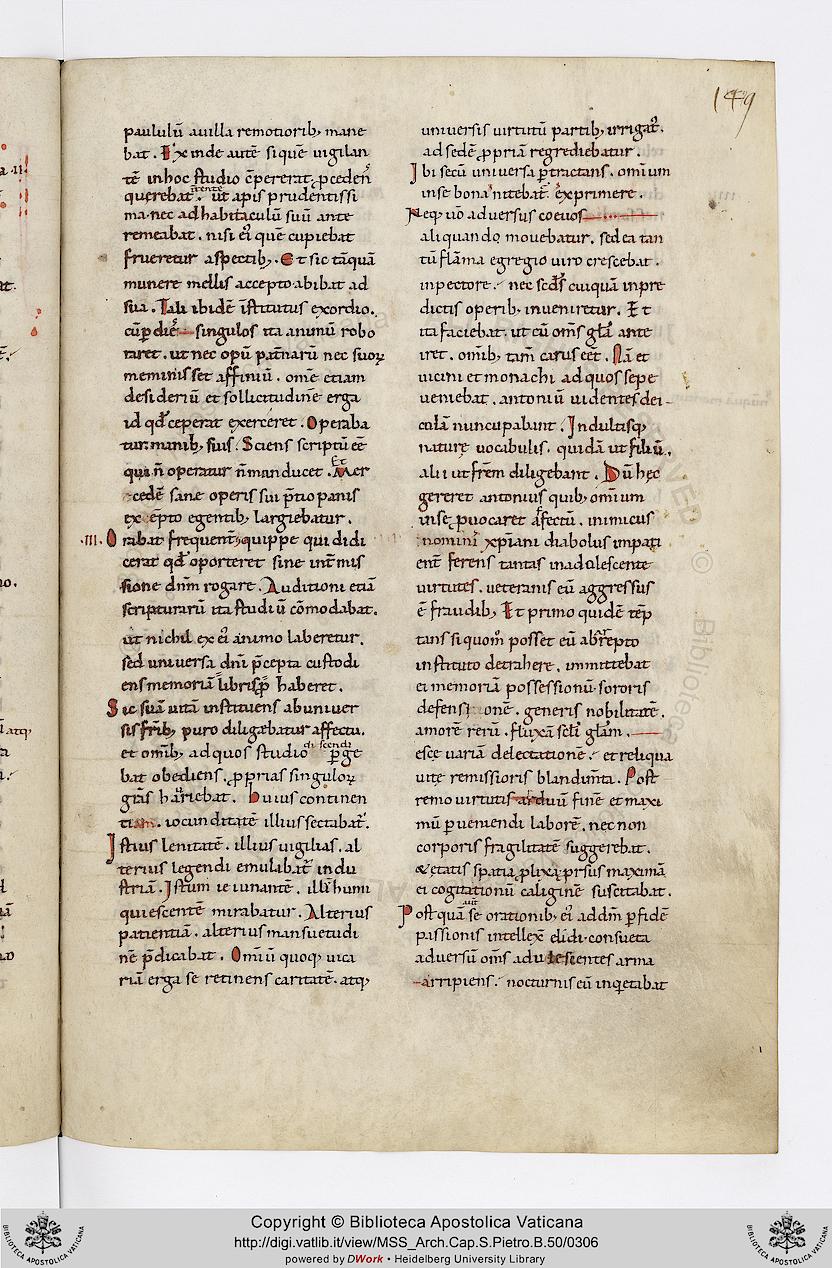 149
paululū a uilla remotiorib; mane
bat. Exinde autē si quē uigilan
tē in hoc studio cēpererat, pcedens
querebat. ut apis prudentissi
ma. nec ad habitaculū suū ante
remeabat. nisi ei quē cupiebat
frueretur aspectib;. Et sic tāquā
munere mellis accepto abibat ad
sua. Tali ibidē īstitutus exordio.
cūp die singulos ita animū robo
raret. ut nec opū pat̄narū nec suoꝝ
meminisset affiniū. omē etiam
desideriū et sollicitudinē erga
id qđ ceperat exerceret. Operaba
tur manib; suis. Sciens scriptū eē
qui n̄ operatur n̄ manducet. Mer
cedē sane operis sui p̄tio panis
excēpto egentib; largiebatur.
.III. Orabat frequent; quippe qui didi
cerat qđ oporteret sine int̄mis
sione dnm̄ rogare. Auditioni etiā
scripturarū ita studiū cōmodabat.
ut nichil ex ei animo laberetur.
sed uniuersa dnī p̄cepta custodi
ens memoriā libris haberet.
Sic suā uitā instituens ab uniuer
sis frīb; puro diligebatur affectu.
et omīb; ad quos studio discendi pge
bat obediens. pprias singuloꝝ
grās hauriebat. Huius continen
tiam. iocunditatē illius sectabat̄.
Istius lenitatē. illius uigilias. al
terius legendi emulabat̄ indu
striā. Istum ieiunantē. illū humi
quiescentē mirabatur. Alterius
patientiā. alterius mansuetudi
nē p̄dicabat. Omīū quoq; uica
riā erga se retinens caritatē. atq;
uniuersis uirtutū partib; irrigat̄.
ad sedē ppriā regrediebatur.
Ibi secū uniuersa ptractans. omīum
in se bona nitebat̄ exprimere.
Neq; uō aduersus coeuos
aliquando mouebatur. sed ea tan
tū flāma egregio uiro crescebat.
in pectore. nec scđs cuiquā in pre
dictis operib; inueniretur. Et
ita faciebat. ut cū om̄s glā ante
iret. omīb; tam̄ carus eēt. Nā et
uicini et monachi ad quos sepe
ueniebat. antoniū uidentes dei
colā nuncupabunt. Indultisq;
naturę uocabulis. quidā ut filiū.
alii ut frēm diligebant. Dū hęc
gereret antonius quib; omīum
in se puocaret affectū. inimicus
nominis xp̄iani diabolus impati
ent̄ ferens tantas in adolescente
uirtutes. ueteranis eū aggressus
ē fraudib; Et primo quidē tēp
tans si quom̄ posset eū abrepto
instituto detrahere. immittebat
ei memoriā possessionū. sororis
defensionē. generis nobilitatē.
amorē rerū. fluxā scli glām.
esce uariā delectationē. et reliqua
uite remissioris blandimta. Post
remo uirtutis arduū finē et maxi
mū pueniendi laborē. nec non
corporis fragilitatē suggerebat.
& etatis spatia plixa prsus maximā
ei cogitationū caliginē suscitabat.
Postquā aut se orationib; ei ad dm̄ p fidē
passionis intellexit elidi. consueta
aduersū om̄s adulescentes arma
arripiens. nocturnis eū inq̄etabat
Copyright © Biblioteca Apostolica Vaticana
http://digi.vatlib.it/view/MSS_Arch.Cap.S.Pietro.B.50/0306
powered by DWork • Heidelberg University Library
BIBLIOTECA APOSTOLICA VATICANA
BIBLIOTECA APOSTOLICA VATICANA